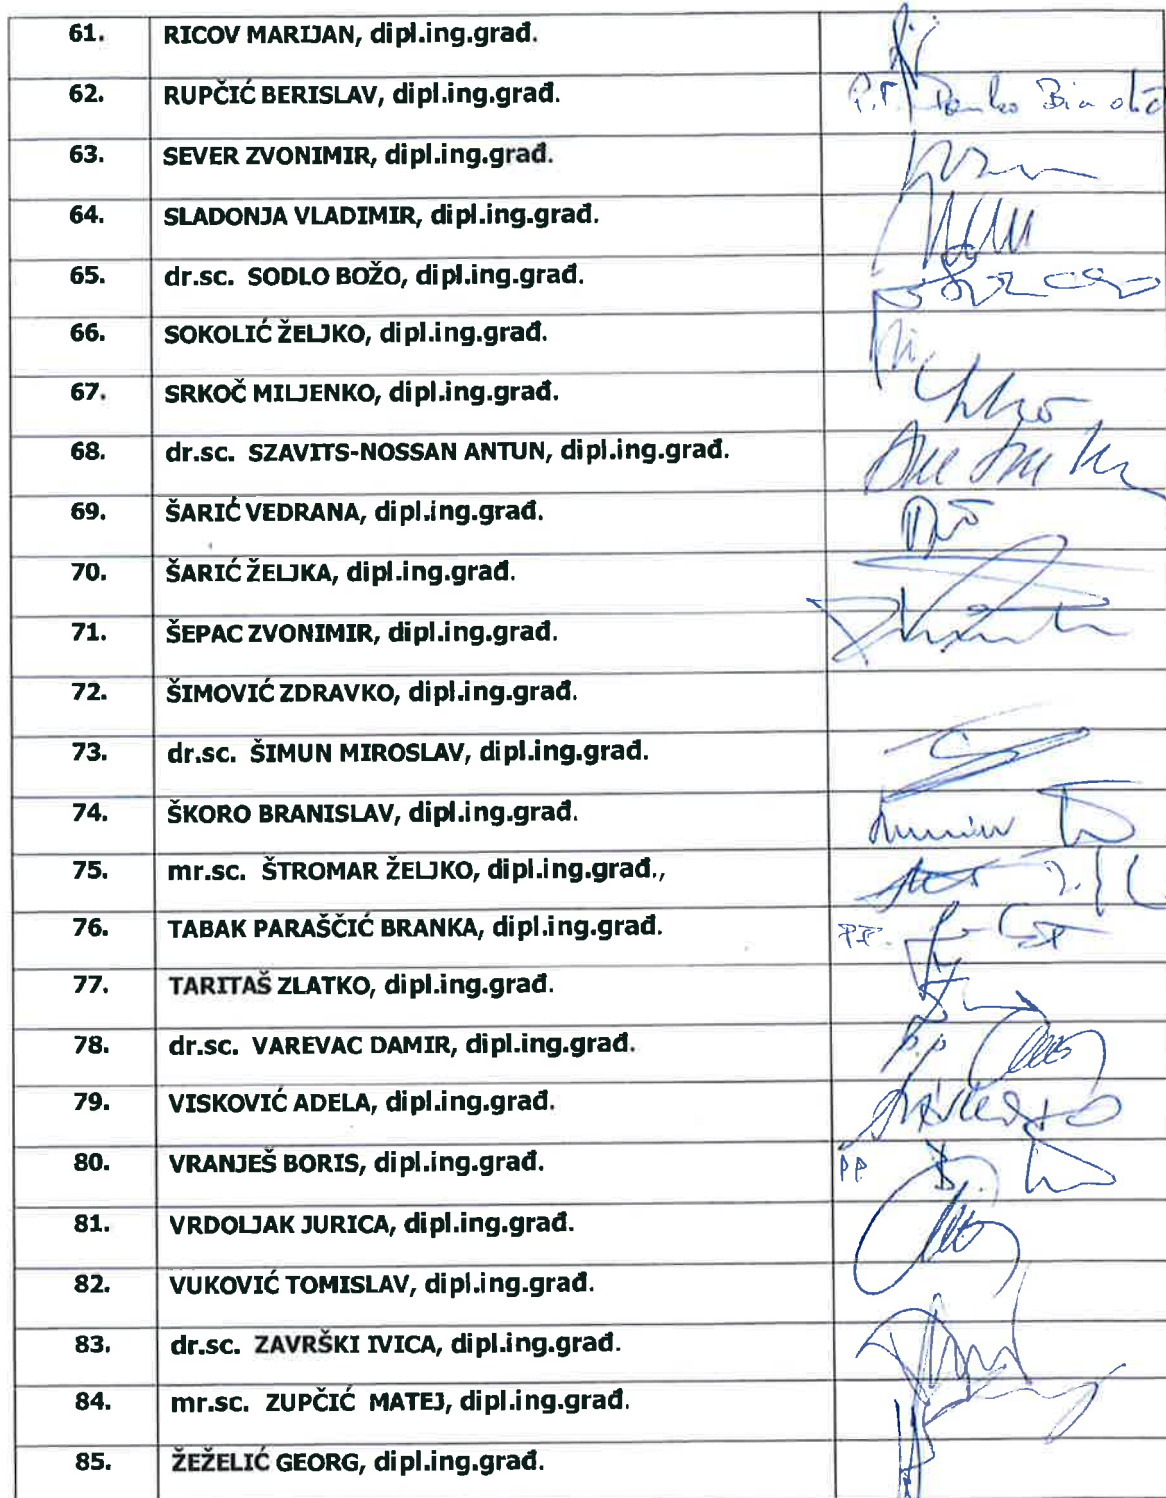 61. RICOV MARIJAN, dipl.ing.građ.
62. RUPČIĆ BERISLAV, dipl.ing.građ. P.P.
63. SEVER ZVONIMIR, dipl.ing.građ.
64. SLADONJA VLADIMIR, dipl.ing.građ.
65. dr.sc. SODLO BOŽO, dipl.ing.građ.
66. SOKOLIĆ ŽELJKO, dipl.ing.građ.
67. SRKOČ MILJENKO, dipl.ing.građ.
68. dr.sc. SZAVITS-NOSSAN ANTUN, dipl.ing.građ.
69. ŠARIĆ VEDRANA, dipl.ing.građ.
70. ŠARIĆ ŽELJKA, dipl.ing.građ.
71. ŠEPAC ZVONIMIR, dipl.ing.građ.
72. ŠIMOVIĆ ZDRAVKO, dipl.ing.građ.
73. dr.sc. ŠIMUN MIROSLAV, dipl.ing.građ.
74. ŠKORO BRANISLAV, dipl.ing.građ.
75. mr.sc. ŠTROMAR ŽELJKO, dipl.ing.građ.,
76. TABAK PARAŠČIĆ BRANKA, dipl.ing.građ. P.P.
77. TARITAŠ ZLATKO, dipl.ing.građ.
78. dr.sc. VAREVAC DAMIR, dipl.ing.građ. p.p
79. VISKOVIĆ ADELA, dipl.ing.građ.
80. VRANJEŠ BORIS, dipl.ing.građ. PP.
81. VRDOLJAK JURICA, dipl.ing.građ.
82. VUKOVIĆ TOMISLAV, dipl.ing.građ.
83. dr.sc. ZAVRŠKI IVICA, dipl.ing.građ.
84. mr.sc. ZUPČIĆ MATEJ, dipl.ing.građ.
85. ŽEŽELIĆ GEORG, dipl.ing.građ.